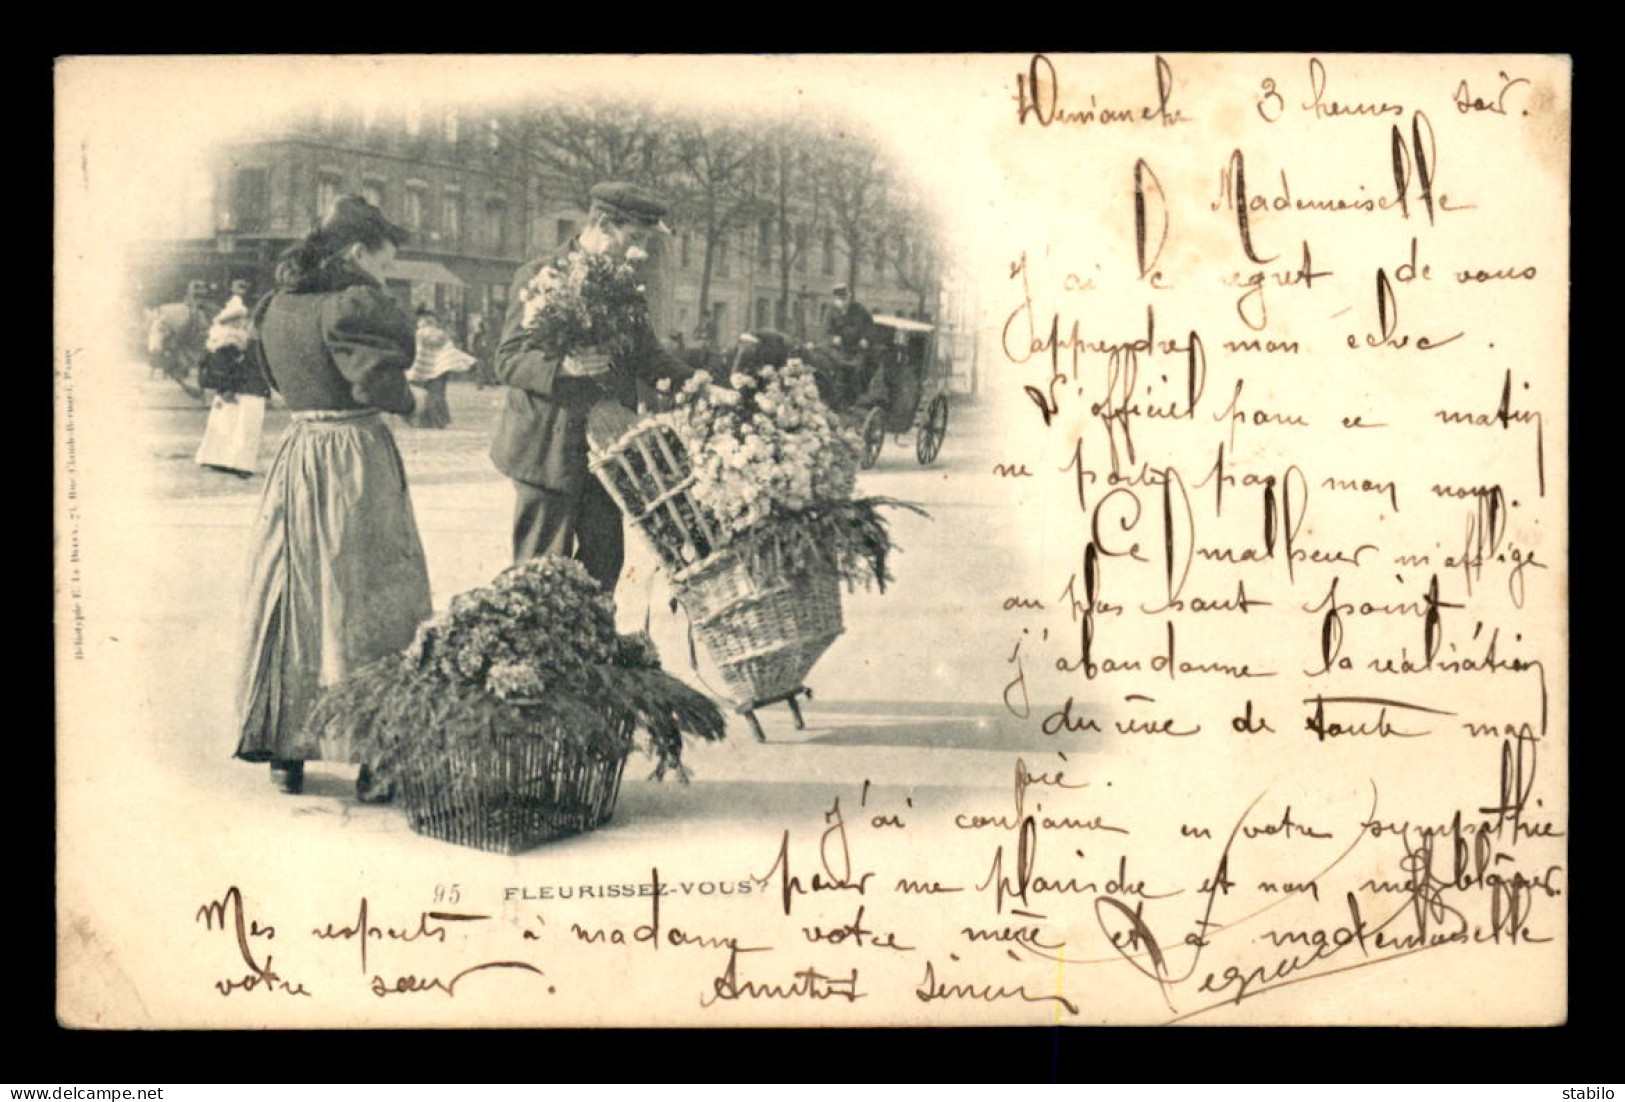 Demanche 3 heures soir.
Mademoiselle
J'ai le regret de vous
apprendre mon échec.
L'officiel paru ce matin
ne porte pas mon nom.
Ce malheur m'afflige
au plus haut point
j'abandonne la réalisation
du rêve de toute ma
vie.
J'ai confiance en votre sympathie
pour me plaindre et non me blâmer.
Mes respects à madame votre mère et à mademoiselle
votre sœur. Amitiés
95 FLEURISSEZ-VOUS?
Héliotypie E. Le Deley, Rue Claude-Bernard, Paris
stabilo